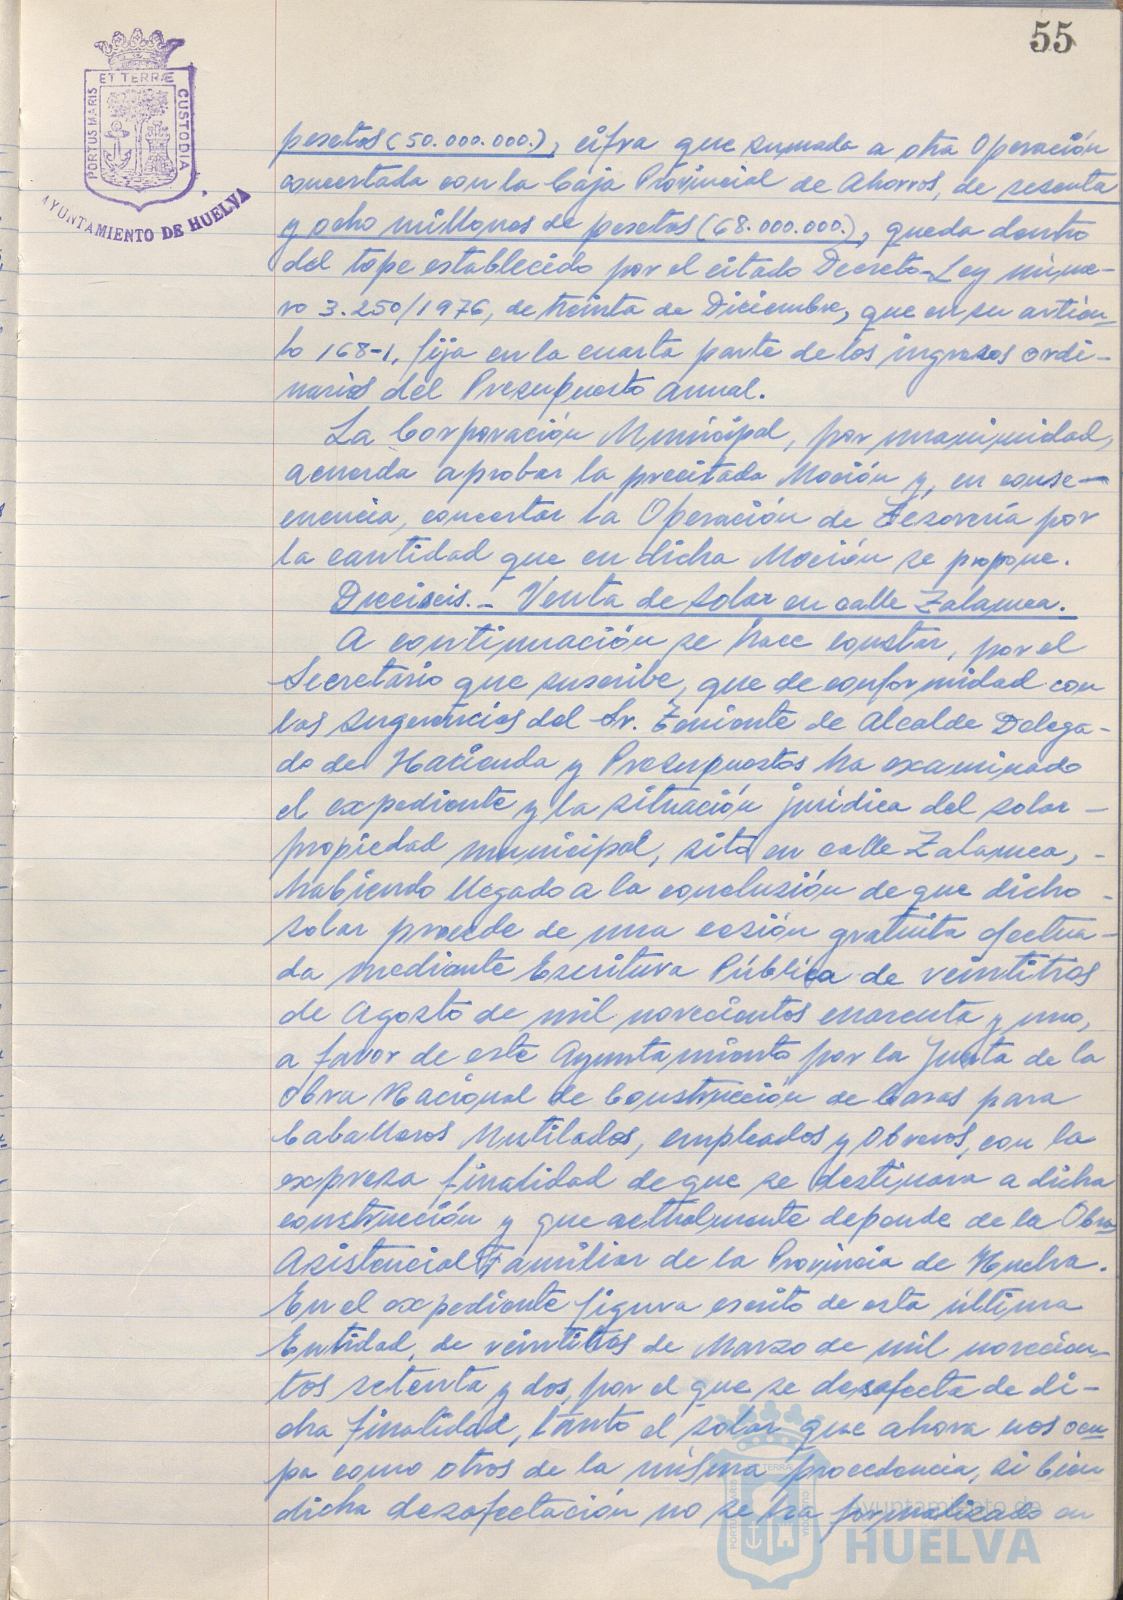 55
PORTUS MARIS ET TERRÆ CUSTODIA
AYUNTAMIENTO DE HUELVA
pesetas (50.000.000.), cifra que sumada a otra Operación
concertada con la Caja Provincial de Ahorros, de sesenta
y ocho millones de pesetas (68.000.000.), queda dentro
del tope establecido por el citado Decreto-Ley núme-
ro 3.250/1976, de treinta de Diciembre, que en su artícu-
lo 168-1, fija en la cuarta parte de los ingresos ordi-
narios del Presupuesto anual.
La Corporación Municipal, por unanimidad,
acuerda aprobar la precitada Moción y, en conse-
cuencia, concertar la Operación de Tesorería por
la cantidad que en dicha Moción se propone.
Dieciseis.- Venta de solar en calle Zalamea.
A continuación se hace constar, por el
Secretario que suscribe, que de conformidad con
las sugerencias del Sr. Teniente de Alcalde Delega-
do de Hacienda y Presupuestos ha examinado
el expediente y la situación jurídica del solar -
propiedad municipal, sito en calle Zalamea, -
habiendo llegado a la conclusión de que dicho -
solar procede de una cesión gratuita efectua-
da mediante Escritura Pública de veintitres
de Agosto de mil novecientos cuarenta y uno,
a favor de este Ayuntamiento por la Junta de la
Obra Nacional de Construcción de Casas para
Caballeros Mutilados, empleados y Obreros, con la
expresa finalidad de que se destinara a dicha
construcción y que actualmente depende de la Obra
Asistencial Familiar de la Provincia de Huelva.
En el expediente figura escrito de esta última
Entidad, de veintitrés de Marzo de mil novecien-
tos setenta y dos, por el que se desafecta de di-
cha finalidad, tanto el solar que ahora nos ocu
pa como otros de la misma procedencia, si bien
dicha desafectación no se ha formalizado en
Ayuntamiento de
HUELVA